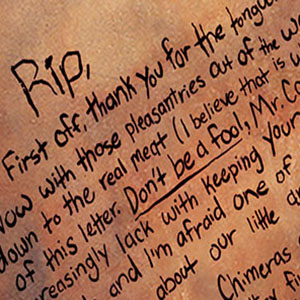 Rip,
First off, thank you for the tongue
Now with those pleasantries out of the w
down to the real meat (I believe that is u
of this letter. Don't be a fool, Mr. Co
reasingly lack with keeping your
and I'm afraid one of
about our little
Chimeras